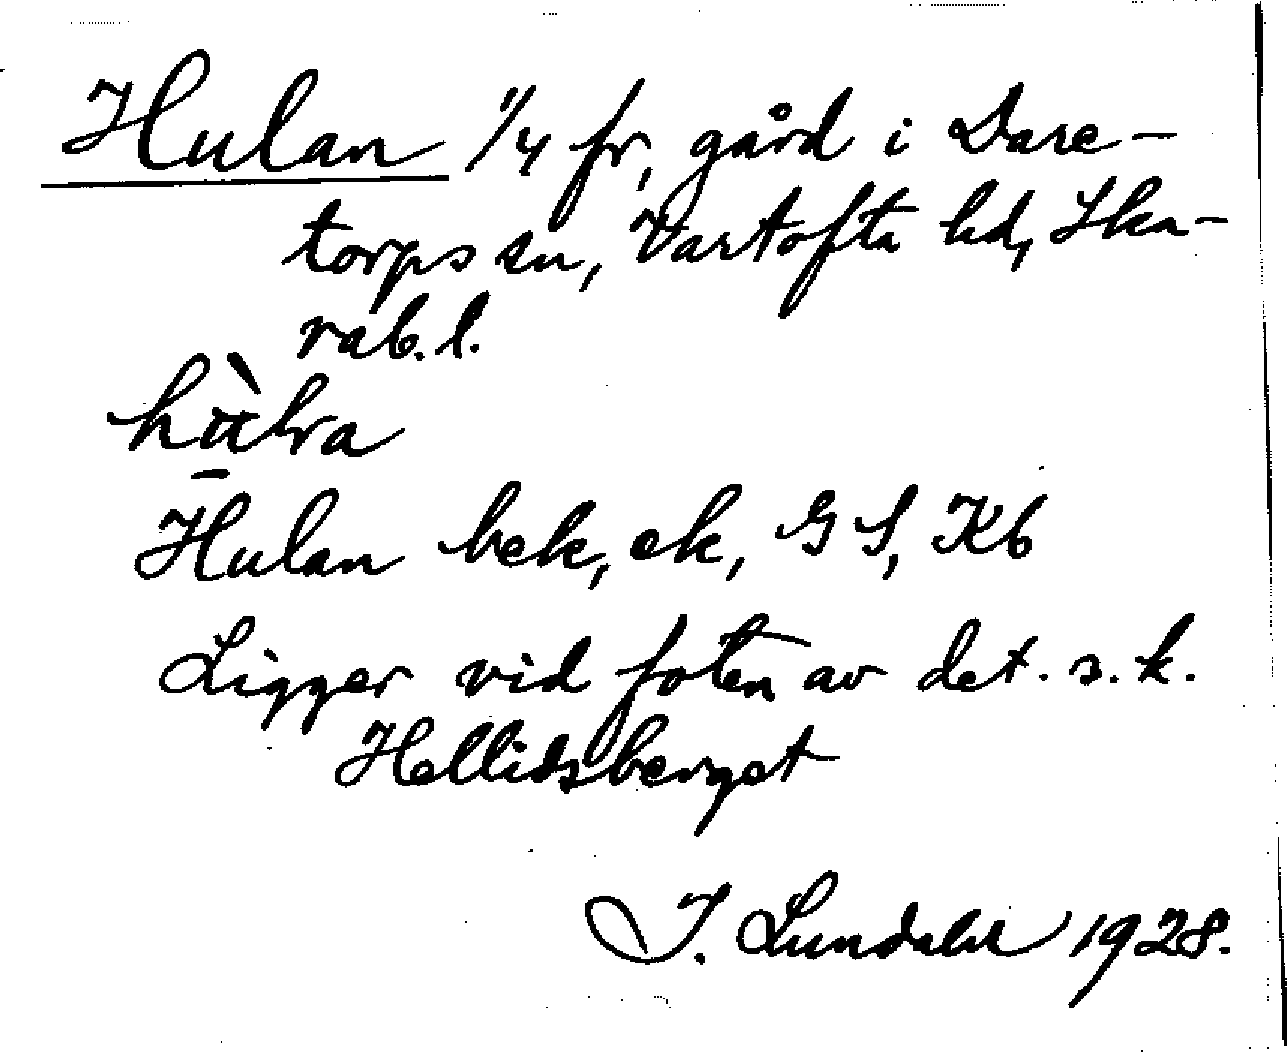 Hulan 1/4 fr, gård i Dare-
torps sn, Vartofta hd, Ska-
rab. l.
Hulan bek, ek, GS, Kb
Ligger vid foten av det. s. k.
Hellidsberget
I. Lundahl 1928.